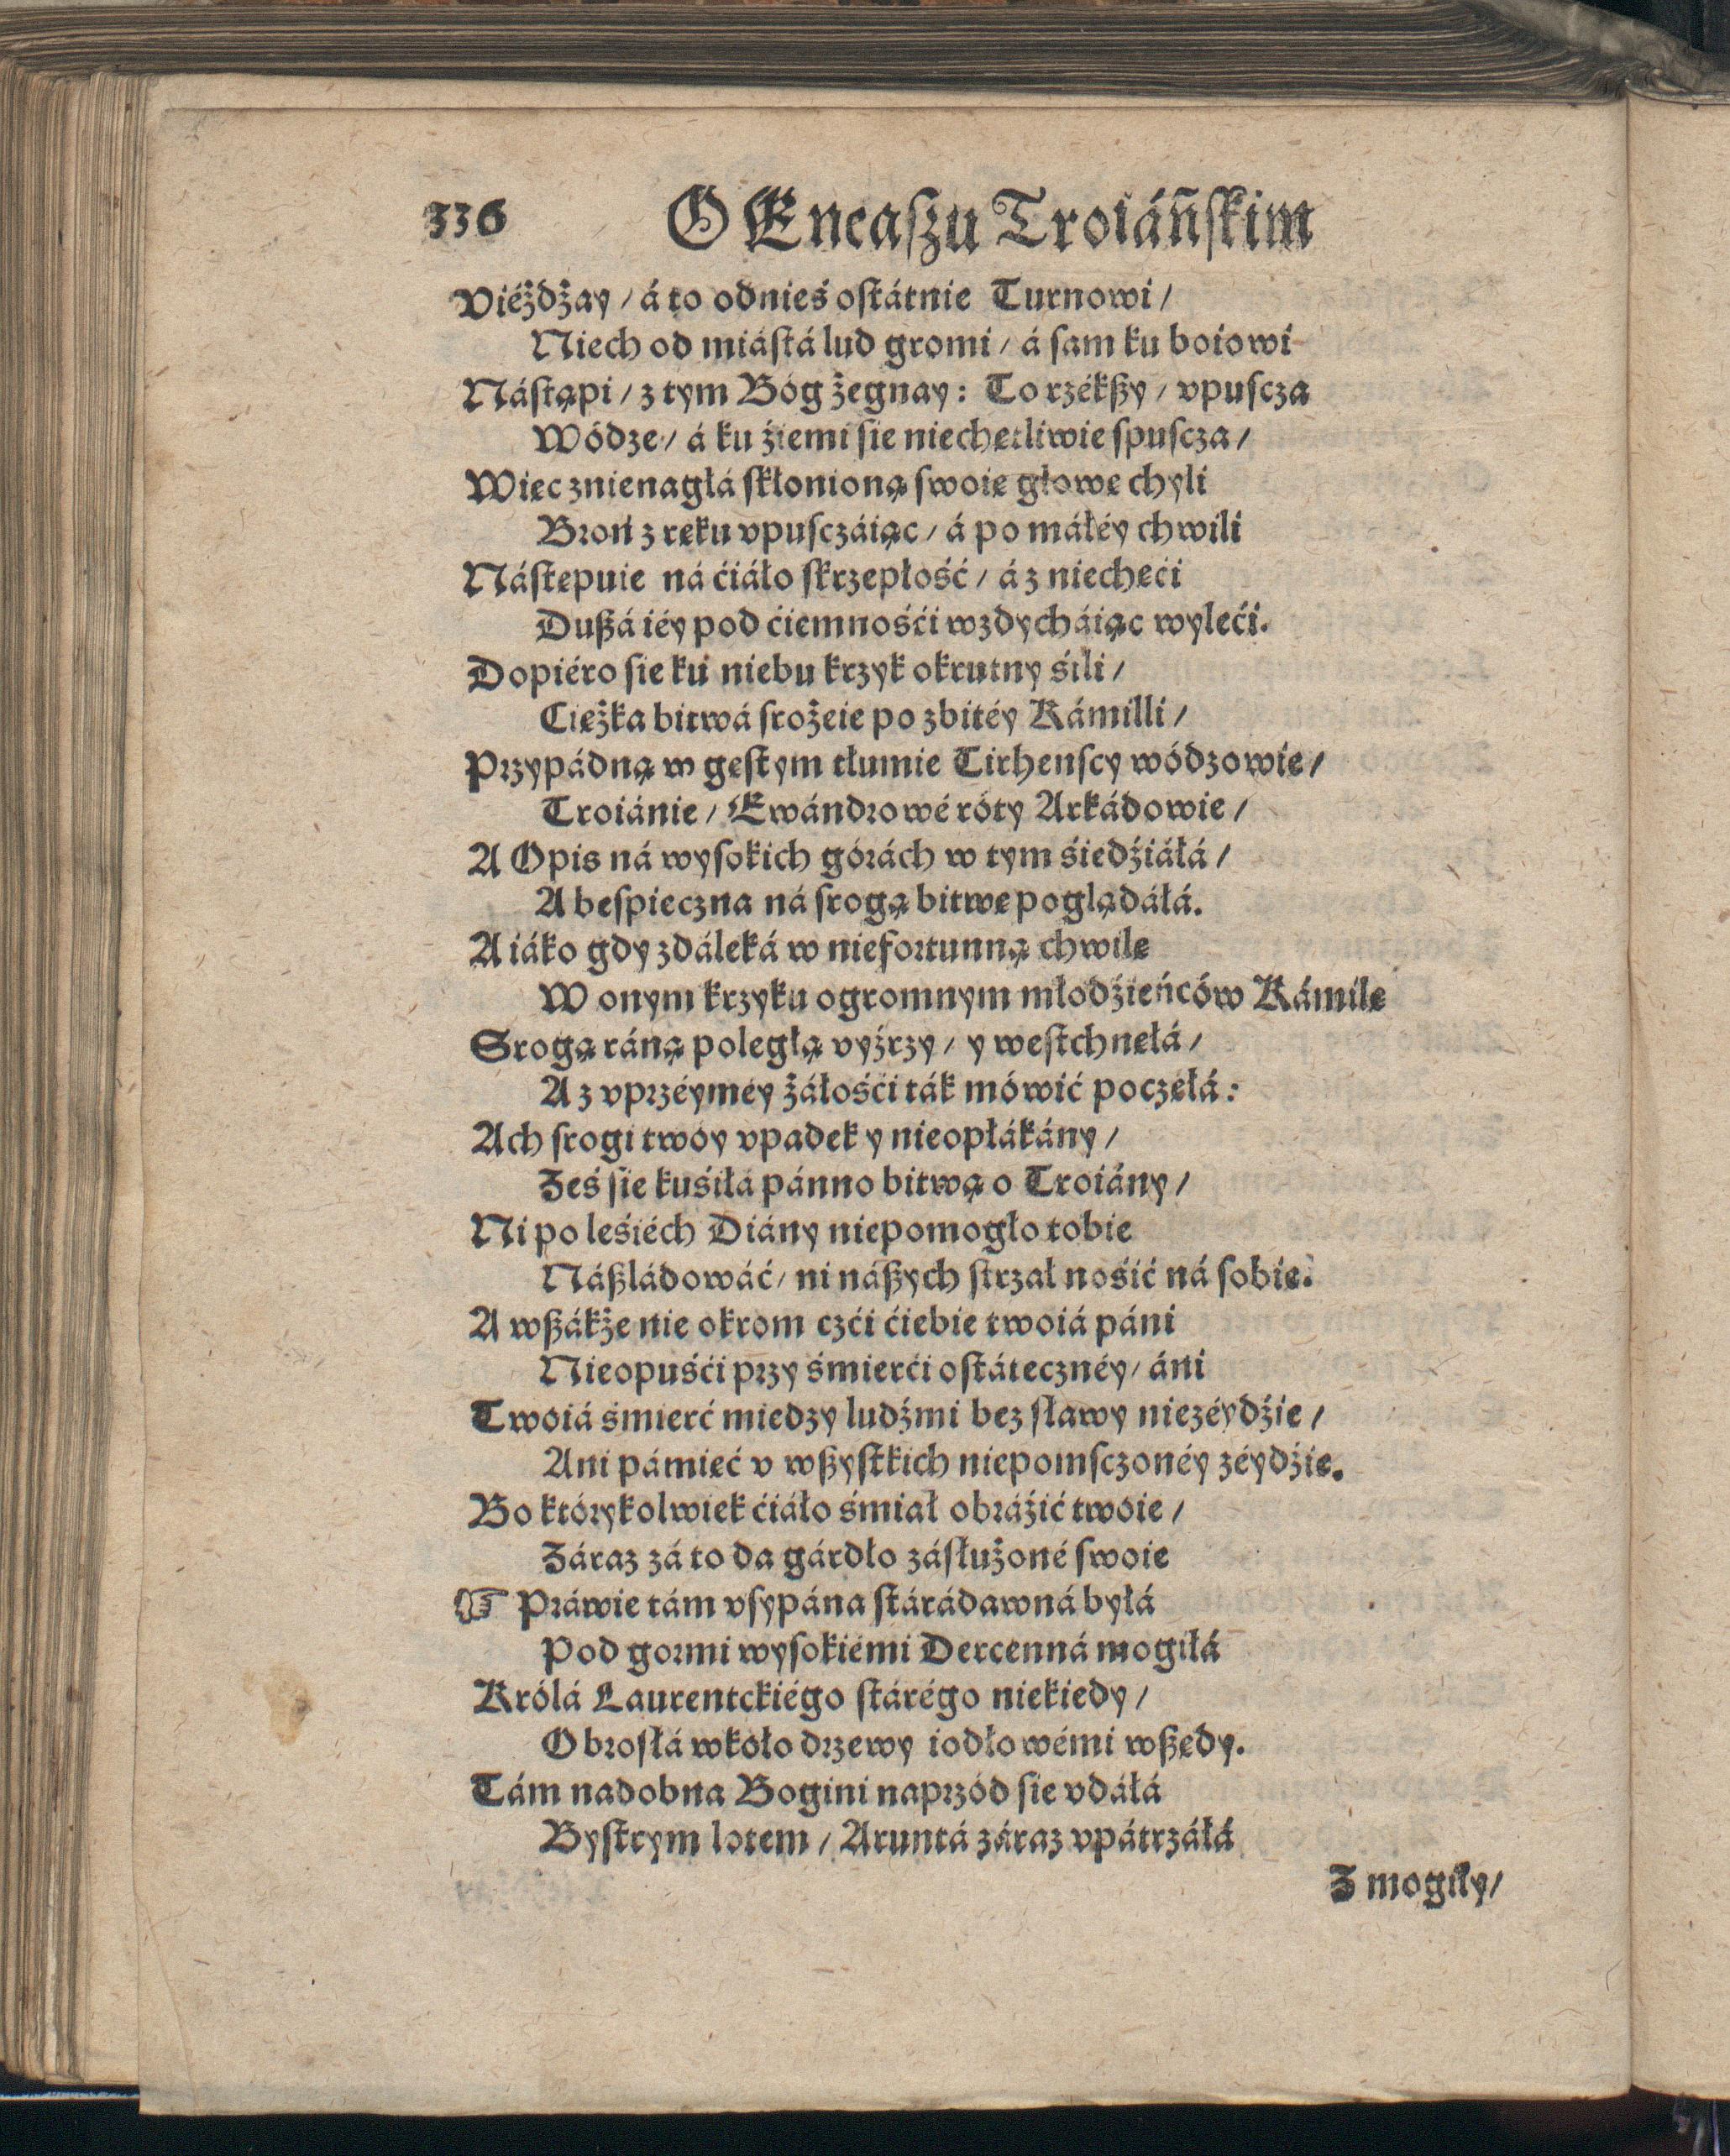 336 O Eneaſzu Troiáńſkim
Viéżdżay / á to odnieś oſtátnie Turnowi /
Niech od miáſtá lud gromi / á ſam ku boiowi
Náſtąpi / z tym Bóg żegnay: To rzékßy / vpuſcza
Wódze / á ku źiemi ſie niechętliwie ſpuſcza /
Więc znienagłá ſkłonioną ſwoię głowę chyli
Broń z ręku vpuſczáiąc / á po máłéy chwili
Náſtępuie ná ćiáło ſkrzepłość / á z niechęći
Dußá iéy pod ćiemnośći wzdycháiąc wyleći.
Dopiéro ſie ku niebu krzyk okrutny śili /
Ciężka bitwá ſrożeie po zbitéy Kámilli /
Przypádną w gęſtym tłumie Tirhenſcy wódzowie /
Troiánie / Ewándrowé róty Arkádowie /
A Opis ná wyſokich górách w tym śiedźiáłá /
A beſpieczna ná ſrogą bitwę poglądáłá.
A iáko gdy zdáleká w niefortunną chwilę
W onym krzyku ogromnym młodźieńców Kámilę
Srogą ráną poległą vyźrzy / y weſtchnęłá /
A z vprzéyméy żáłośći ták mówić poczęłá:
Ach ſrogi twóy vpadek y nieopłákány /
Żeś ſie kuśiłá pánno bitwą o Troiány /
Ni po leśiéch Diány niepomogło tobie
Náßládowáć / ni náßych ſtrzał nośić ná ſobie.
A wßákże nie okrom czći ćiebie twoiá páni
Nieopuśći przy śmierći oſtátecznéy / áni
Twoiá śmierć miedzy ludźmi bez ſławy niezéydźie /
Ani pámięć v wßyſtkich niepomſczonéy zéydźie.
Bo którykolwiek ćiáło śmiał obráźić twoie /
Záraz zá to da gárdło záſłużoné ſwoie
☞ Práwie tám vſypána ſtárádawná byłá
Pod gormi wyſokiémi Dercenná mogiłá
Królá Laurentckiégo ſtárégo niekiedy /
Obroſłá wkoło drzewy iodłowémi wßędy.
Tám nadobna Bogini naprzód ſie vdáłá
Byſtrym lotem / Aruntá záraz vpátrzáłá
Z mogiły /